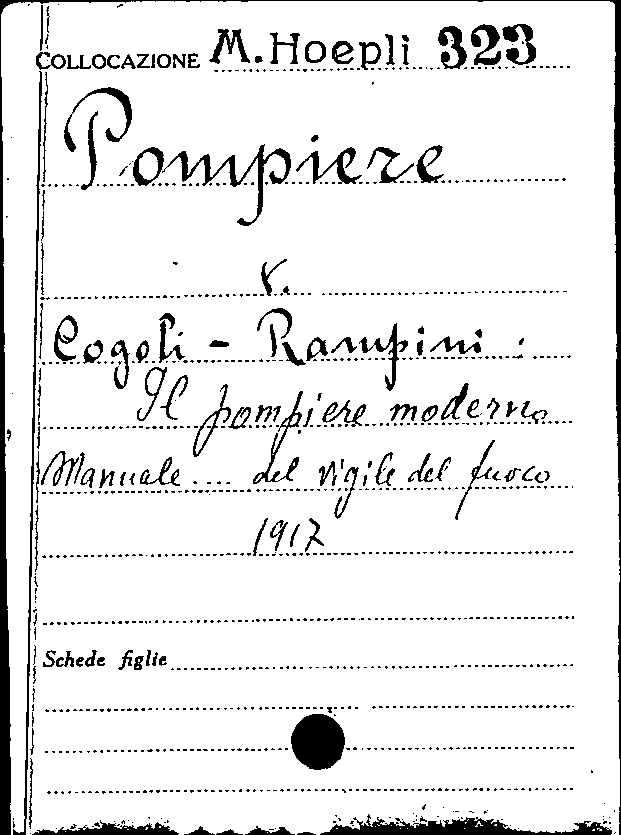 COLLOCAZIONE M. Hoepli 323
Pompiere
v.
Cogoli - Rampini :
Il pompiere moderno
Manuale .... del vigile del fuoco
1917
Schede figlie